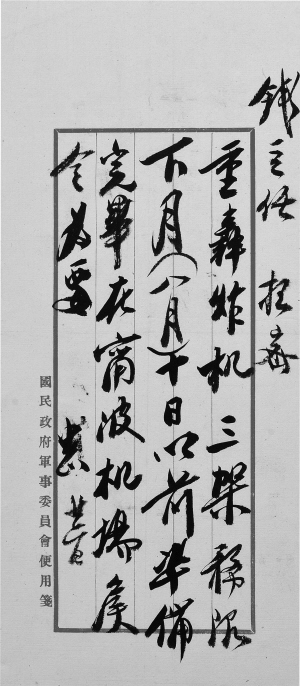 錢主任
重轟炸机三架務限
下月(八月)十日以前準備
完畢在甯波机場候
令為要
國民政府軍事委員會便用箋